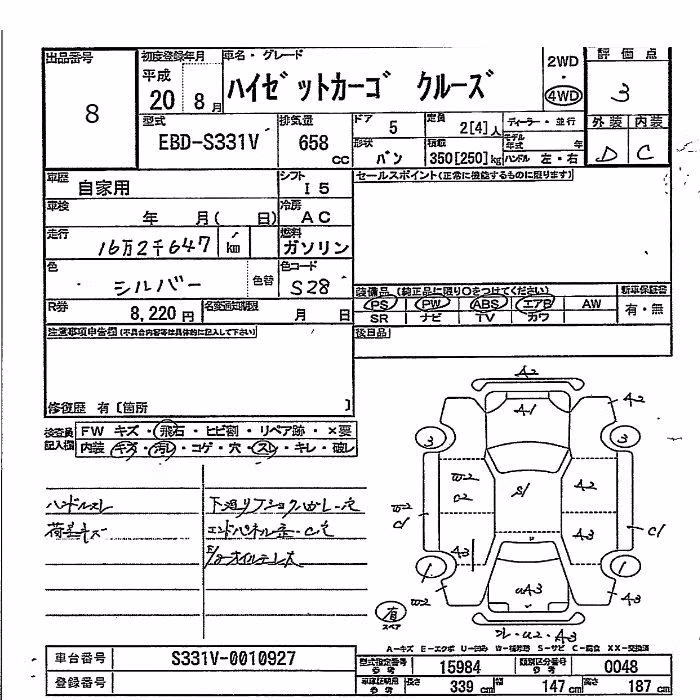 出品番号
8
初度登録年月
平成
20 8月
車名・グレード
ハイゼットカーゴ クルーズ
2WD
・
4WD
評価点
3
型式
EBD-S331V
排気量
658
CC
ドア
5
定員
2[4]人
ディーラー・並行
モデル年式 年
外装 内装
D C
形状
バン
積載
350[250]kg
ハンドル 左・右
車歴
自家用
シフト
I5
セールスポイント(正常に機能するものに限ります)
車検
年 月( 日)
冷房
AC
走行
16万2千647 km
燃料
ガソリン
色
シルバー
色替
色コード
S28
装備品(純正品に限り○をつけてください)
新車保証書
PS PW ABS エアB AW
有・無
SR ナビ TV カワ
R券
8,220円
名変通知期限
月 日
注意事項申告欄(不具合内容等は具体的に記入して下さい)
後日品
修復歴 有〔箇所 〕
検査員
記入欄
FW キズ・飛石・ヒビ割・リペア跡・×要
内装 キズ・汚レ・コゲ・穴・スレ・キレ・破レ
ハンドルスレ
荷室キズ
A2
A1
A2
3
3
W2
U2
S1
A2
W2
C1
A3
C1
A3
1
1
W2
UA3
A3
有
スペア
U2・A3
A-キズ E-エクボ U-凹み W-補修跡 S-サビ C-腐食 XX-交換済
車台番号
S331V-0010927
型式指定番号
参考
15984
類別区分番号
参考
0048
登録番号
車庫証明用
参考
長さ
339cm
幅
147cm
高さ
187cm